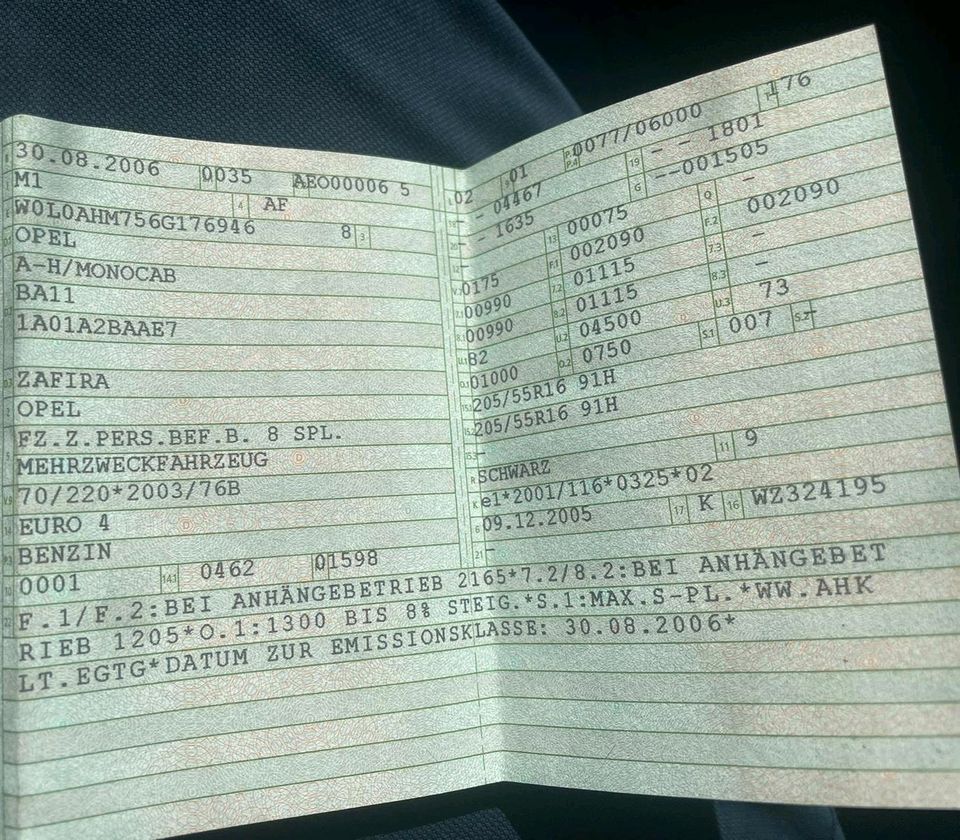 30.08.2006 0035 AEO00006 5
M1 4 AF
W0L0AHM756G176946 8 3
OPEL
A-H/MONOCAB
BA11
1A01A2BAAE7
ZAFIRA
OPEL
FZ.Z.PERS.BEF.B. 8 SPL.
MEHRZWECKFAHRZEUG
70/220*2003/76B
EURO 4
BENZIN
0001 14.1 0462 01598
02 01 0077/06000 176
- 04467 19 - - 1801
- 1635 G --001505
13 00075 Q -
0175 F.1 002090 F.2 002090
00990 7.2 01115 7.3 -
00990 8.2 01115 8.3 -
B2 U.2 04500 U.3 73
01000 O.2 0750 S.1 007 S.2 -
205/55R16 91H
205/55R16 91H
-
R SCHWARZ 11 9
K e1*2001/116*0325*02
6 09.12.2005 17 K 16 WZ324195
21 -
22 F.1/F.2:BEI ANHÄNGEBETRIEB 2165*7.2/8.2:BEI ANHÄNGEBET
RIEB 1205*O.1:1300 BIS 8% STEIG.*S.1:MAX.S-PL.*WW.AHK
LT.EGTG*DATUM ZUR EMISSIONSKLASSE: 30.08.2006*